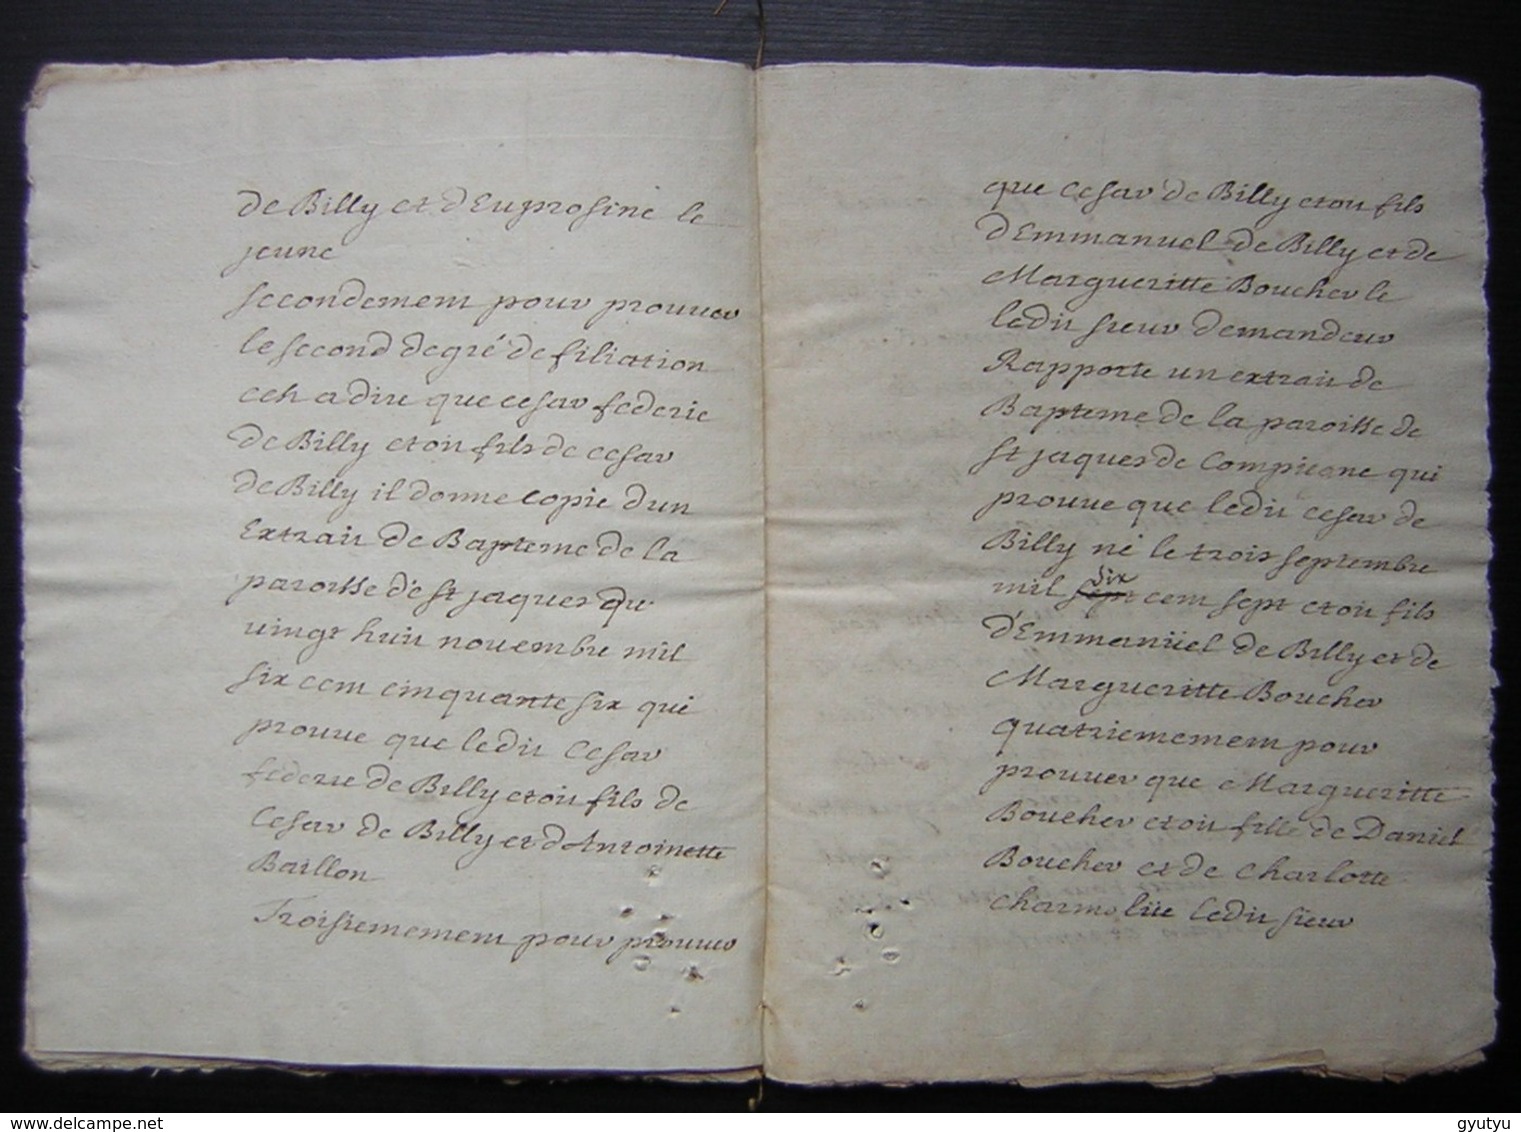 de Billy et d'Euprosine le
jeune
secondement pour prouver
le second degré de filiation
cest a dire que cesar federic
de Billy etoit fils de cesar
de Billy il donne copie dun
Extrait de Bapteme de la
paroisse de st jaques du
vingt huit novembre mil
six cent cinquante six qui
prouve que ledit Cesar
federic de Billy etoit fils de
Cesar de Billy et d'Antoinette
Baillon
Troisiemement pour prouver
que Cesar de Billy etoit fils
d'Emmanuel de Billy et de
Margueritte Boucher le
ledit sieur demandeur
Rapporte un extrait de
Bapteme de la paroisse de
st jaques de Compiegne qui
prouve que ledit Cesar de
Billy né le trois septembre
six
mil sept cent sept etoit fils
d'Emmanüel de Billy et de
Margueritte Boucher
quatriemement pour
prouver que Margueritte
Boucher etoit fille de Daniel
Boucher et de Charlotte
Charmolüe ledit sieur
delcampe.net
gyutyu